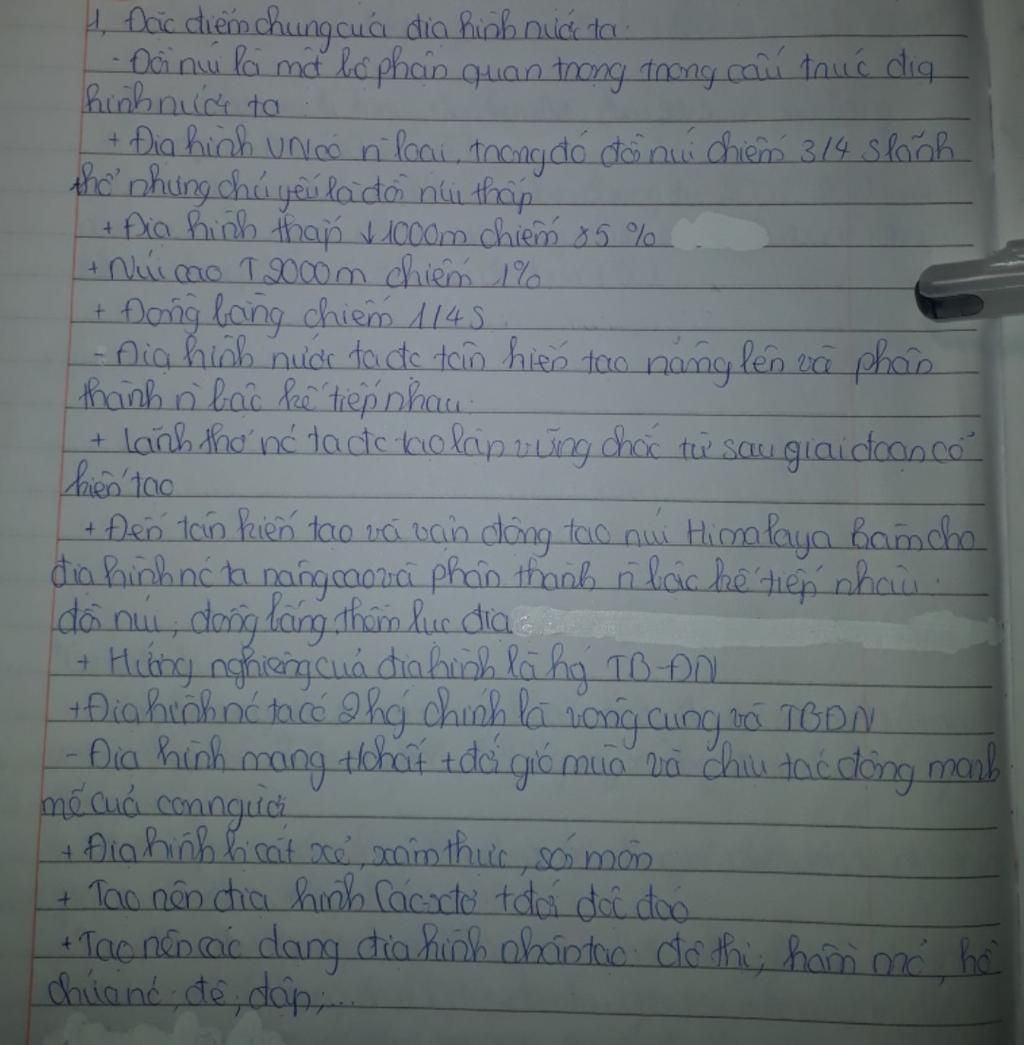 1, Đặc điểm chung của địa hình nước ta.
- Đồi núi là một bộ phận quan trọng trong cấu trúc địa
hình nước ta
+ Địa hình VN có n loại, trong đó đồi núi chiếm 3/4 S lãnh
thổ nhưng chủ yếu là đồi núi thấp
+ Địa hình thấp ↓1000m chiếm 85 %
+ Núi cao ↑ 2000m chiếm 1%
+ Đồng bằng chiếm 1/4 S
- Địa hình nước ta đc tân kiến tạo nâng lên và phân
thành n bậc kế tiếp nhau.
+ lãnh thổ nc ta đc tạo lập vững chắc từ sau giai đoạn cổ
kiến tạo
+ Đến tân kiến tạo và vận động tạo núi Himalaya làm cho
địa hình nc ta nâng cao và phân thành n bậc kế tiếp nhau:
đồi núi, đồng bằng, thềm lục địa
+ Hướng nghiêng của địa hình là hg TB-ĐN
+ Địa hình nc ta có 2 hg chính là vòng cung và TBĐN
- Địa hình mang t/chất t đới gió mùa và chịu tác động mạnh
mẽ của con người
+ Địa hình bị cắt xẻ, xâm thực, sói mòn
+ Tạo nên địa hình Các-xtơ t đới độc đáo
+ Tạo nên các dạng địa hình nhân tạo: đô thị, hầm mỏ, hồ
chứa nc, đê, đập,...